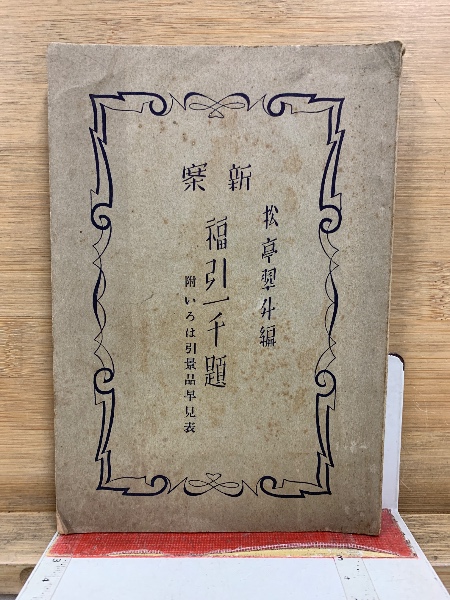 松亭翠外編
新案
福引一千題
附いろは引景品早見表
3
4
5